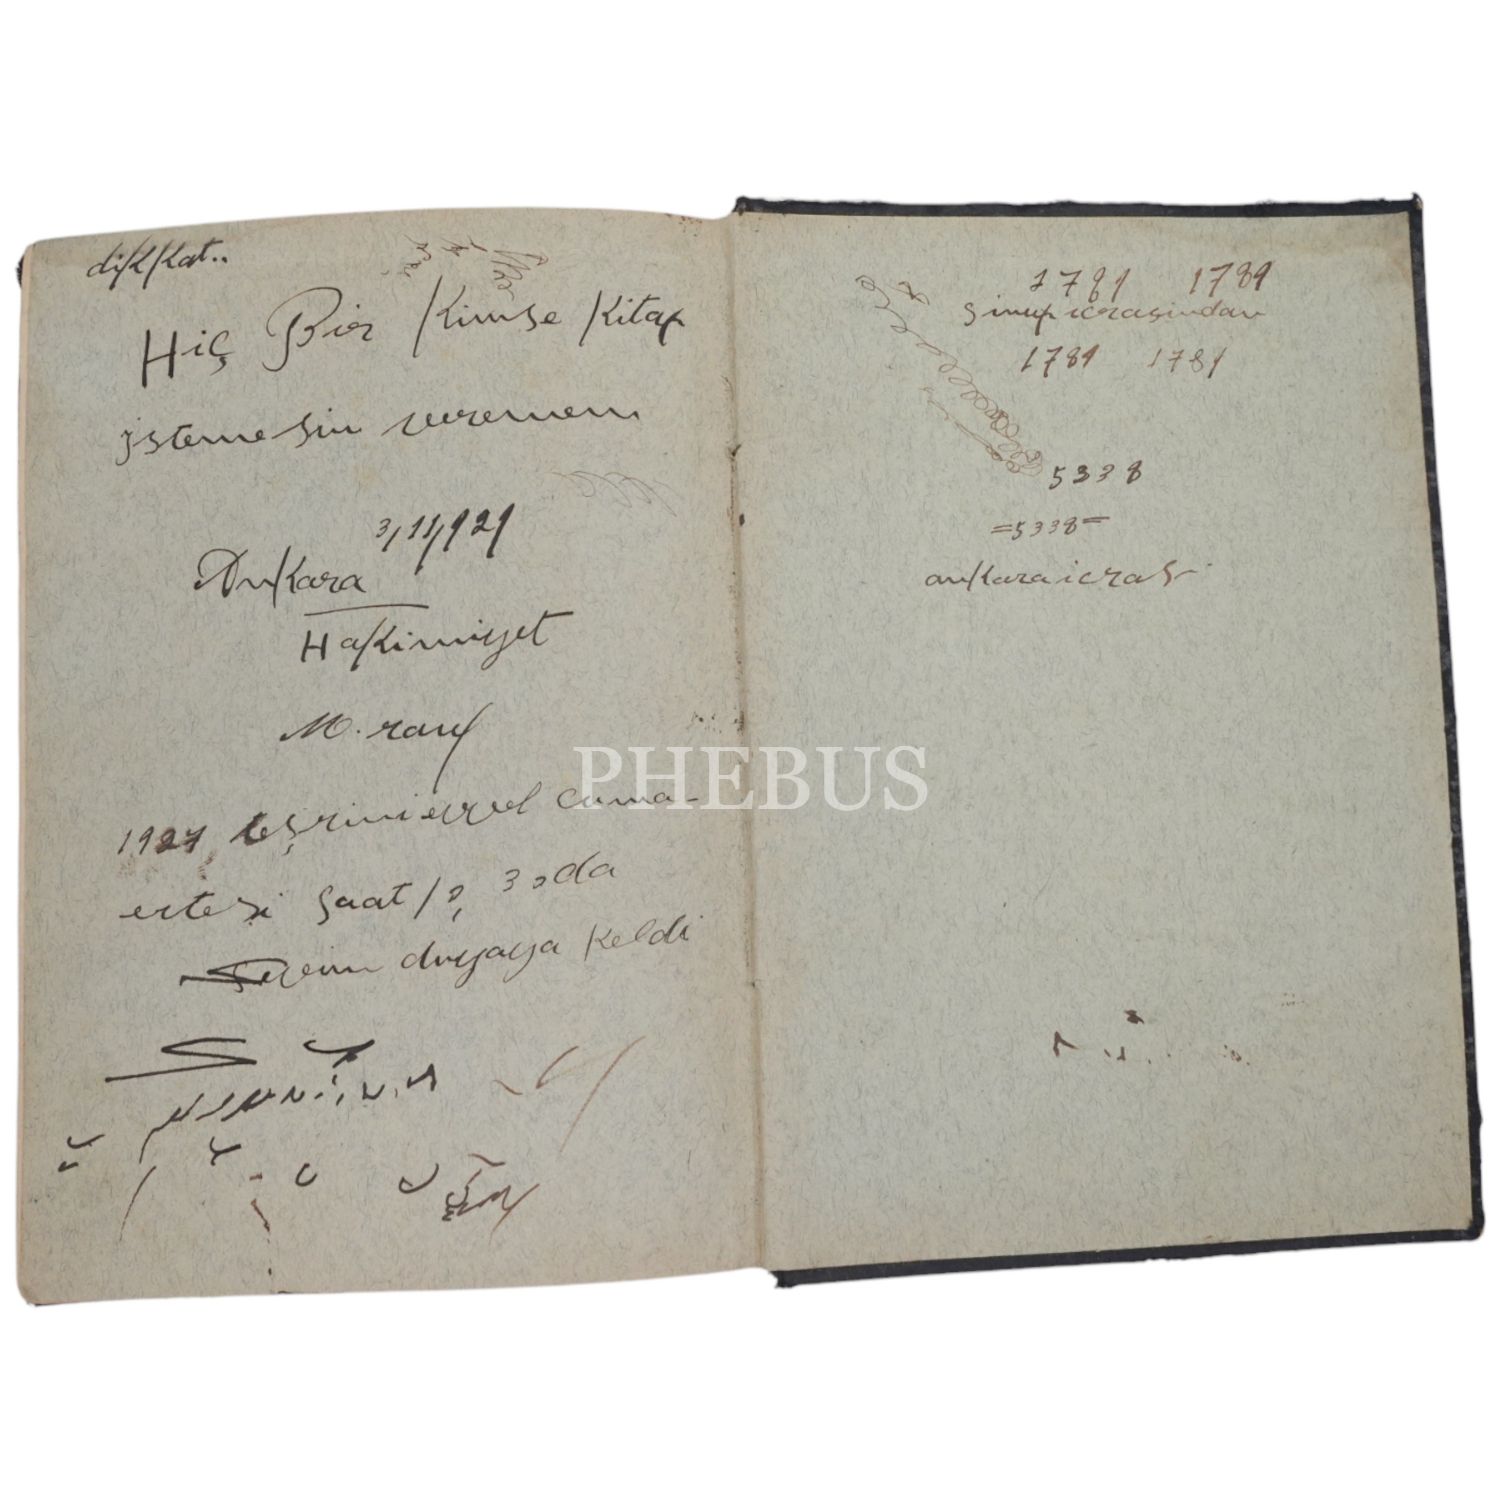 dikkat..
Hiç Bir Kimse Kitap
istemesin veremem
3/11/929
Ankara
Hakimiyet
M. rauf
1927 teşrinievvel cuma-
ertesi saat 30da
duyaya keldi
1781 1789
sinup icrasindan
1789 1781
5338
=5338=
ankara icras
PHEBUS